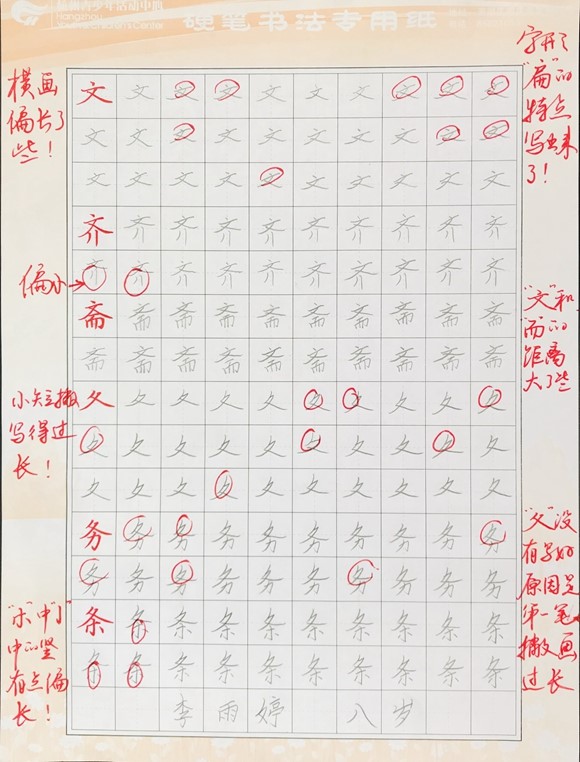 杭州青少年活动中心
Hangzhou Youth&Children's Center
硬笔书法专用纸
横画
偏长了
些！
字形
"扁"的
特点
写出来
了！
文文文文文文文文文文
文文文文文文文文文文
文文文文文文文文文文
齐齐齐齐齐齐齐齐齐齐
偏小
齐齐齐齐齐齐齐齐齐齐
斋斋斋斋斋斋斋斋斋斋
斋斋斋斋斋斋斋斋斋斋
"文"和
"而"的
距离
大了些
小短撇
写得过
长！
夂夂夂夂夂夂夂夂夂夂
夂夂夂夂夂夂夂夂夂夂
夂夂夂夂夂夂夂夂夂夂
务务务务务务务务务务
务务务务务务务务务务
"夂"没
有写好
原因是
第一笔
撇画
过长
条条条条条条条条条条
条条条条条条条条条条
中的竖
有点偏
长！
李雨婷 八岁